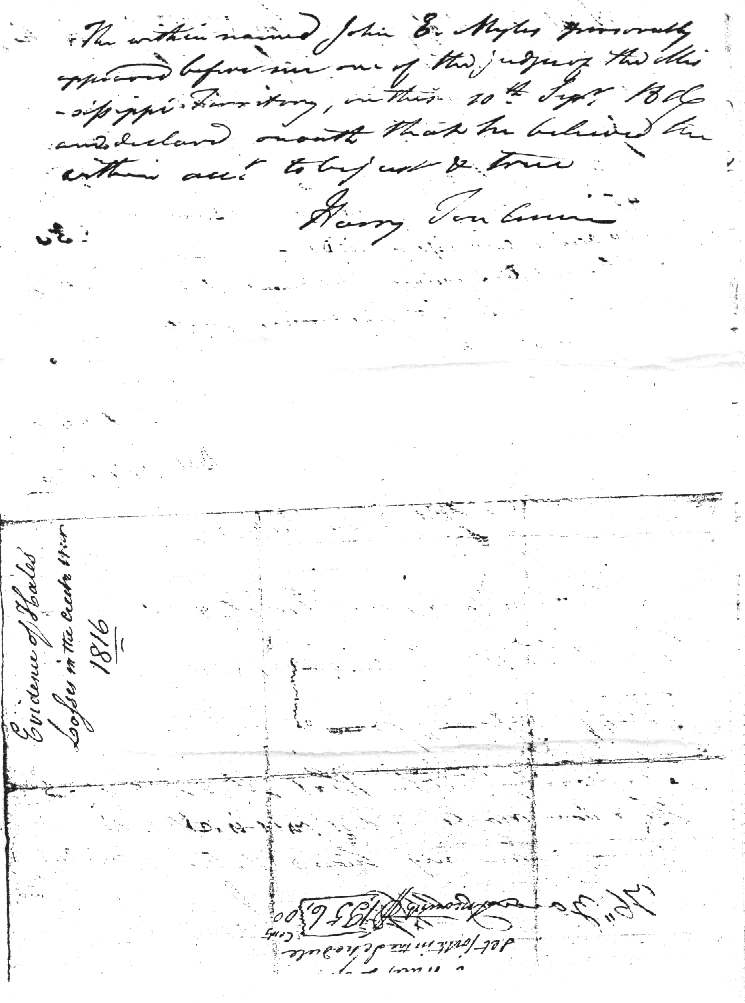 The within named John E. Myles personally
appeared before me one of the judges of the Mis
-sisippi Territory, on this 10th Sepr. 1816
and declared on oath that he believed the
within acct. to be just & true
Harry Toulmin
Evidence of Hales
Losses in the Creek War
1816
No.
Amounting $1,356,00
Cents
set forth in the Schedule